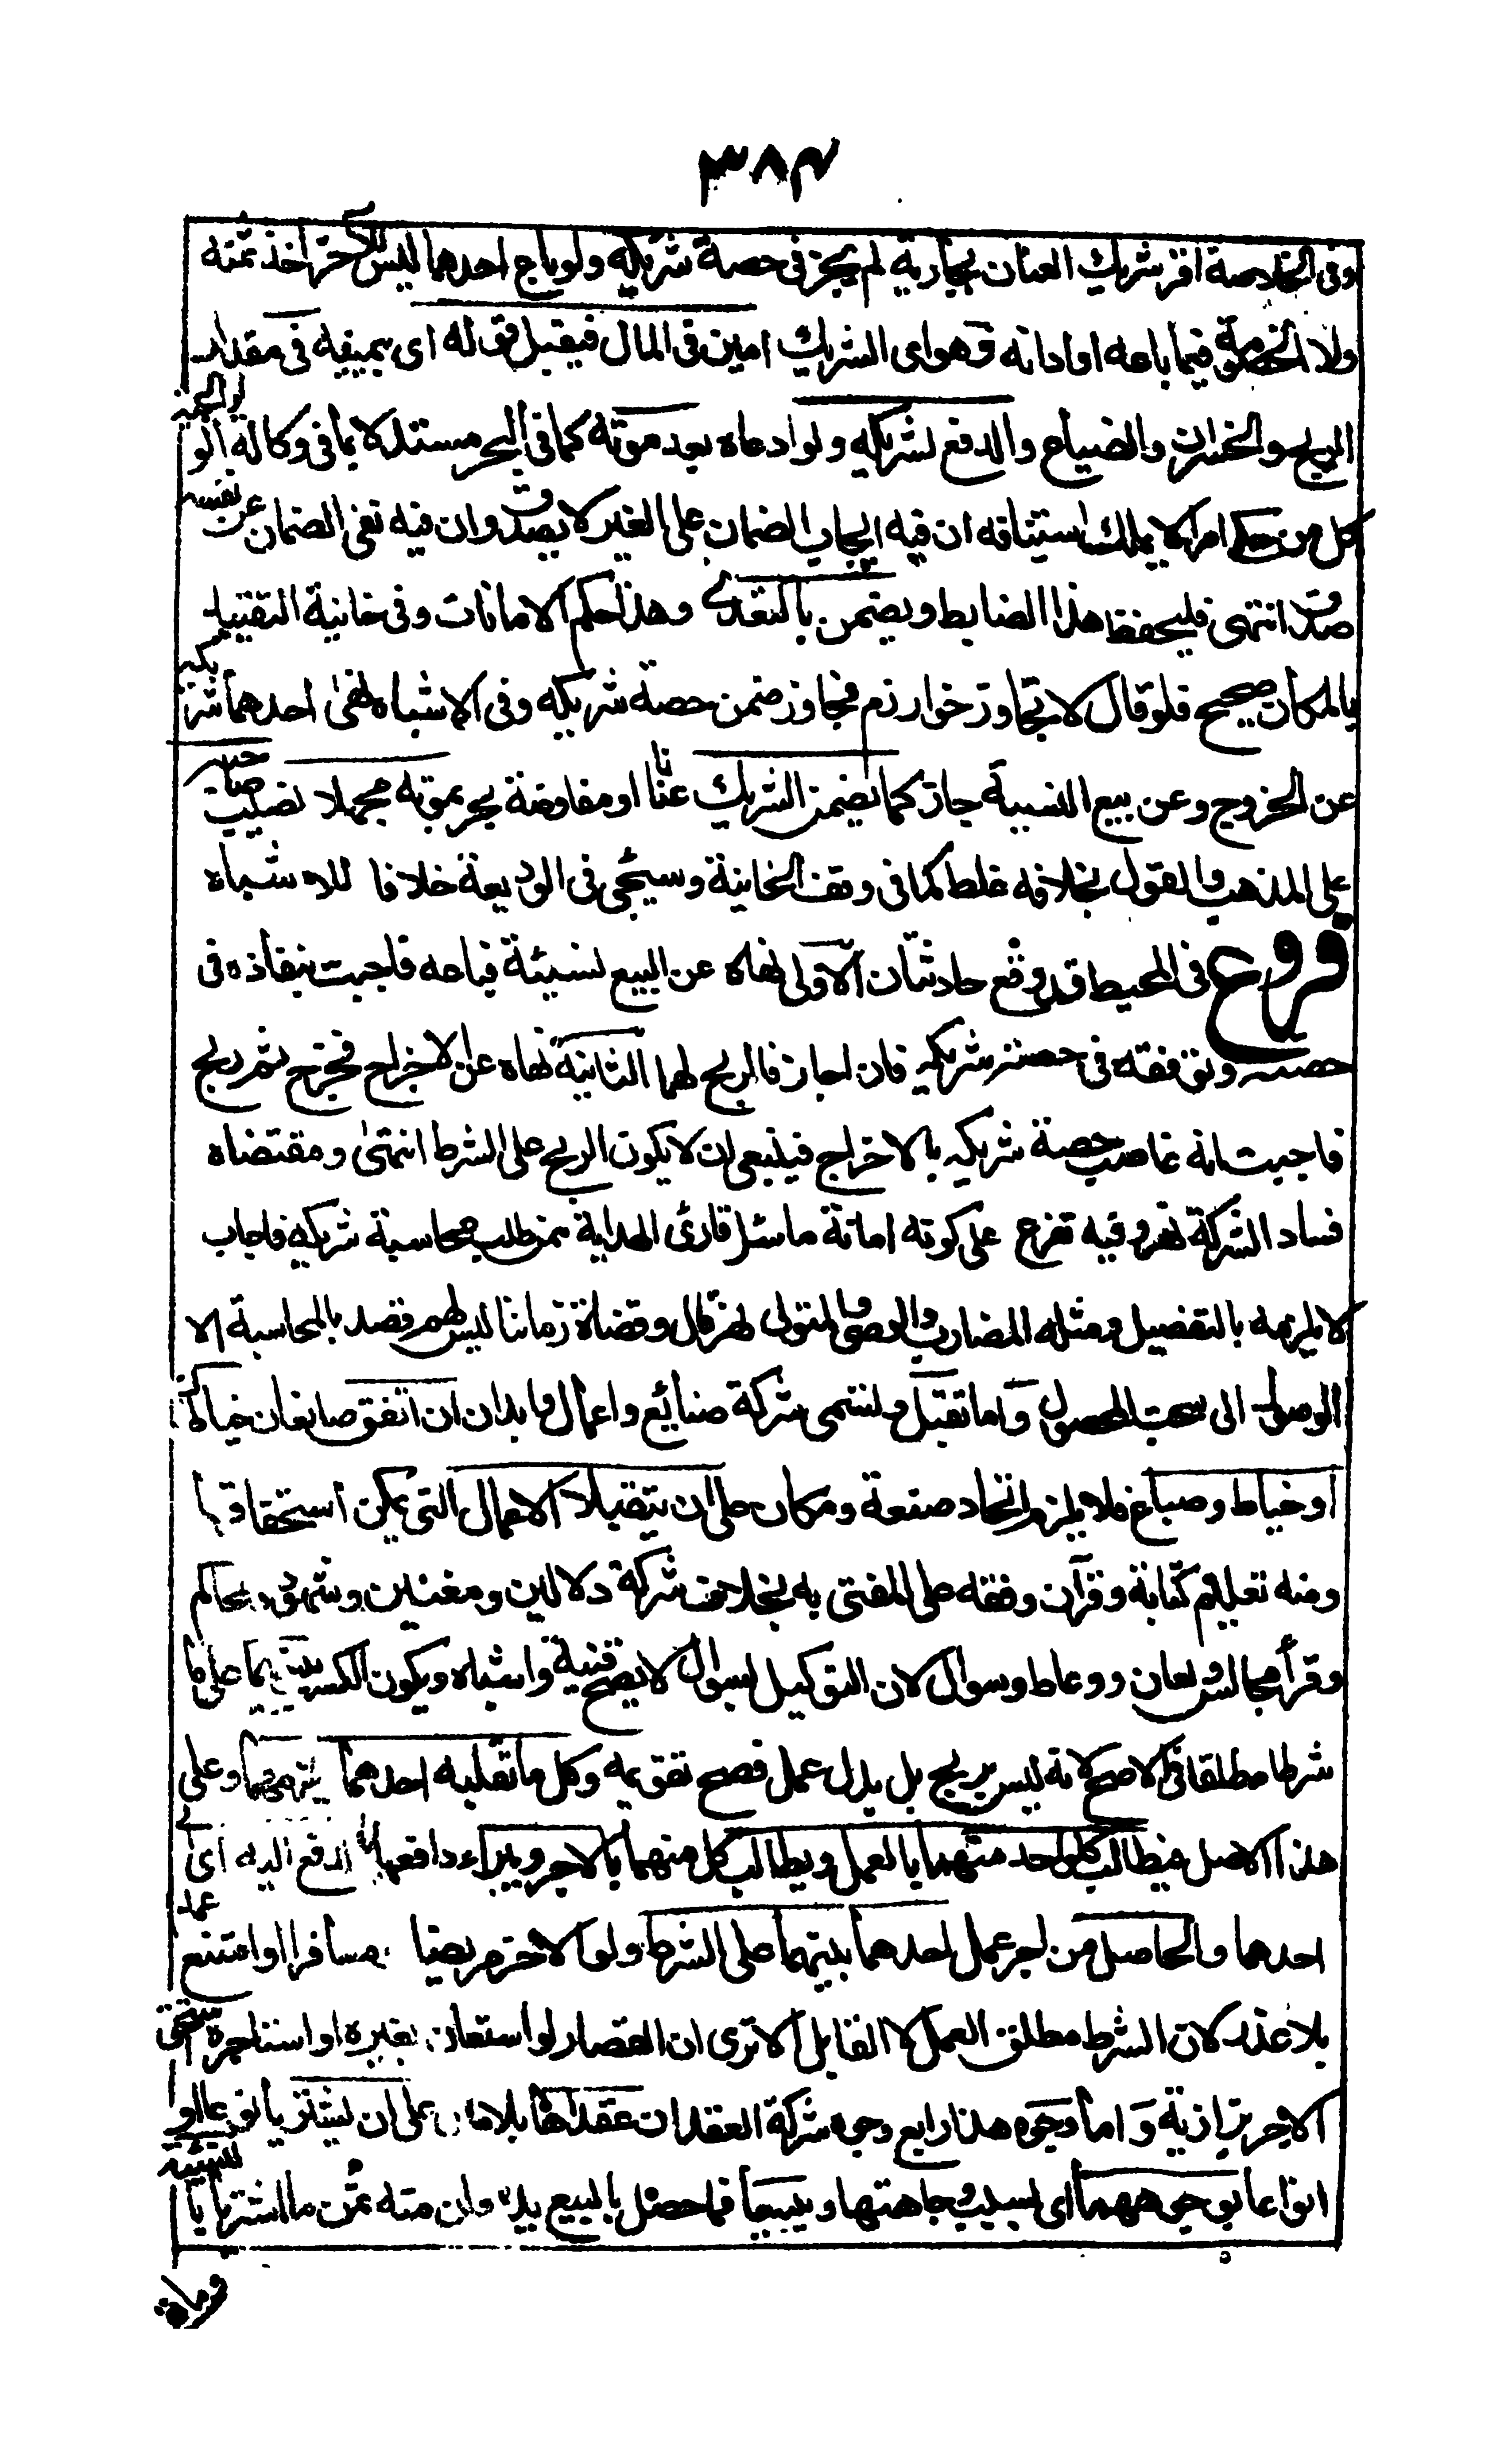 ٣٨٣
وفى الخلاصة اقر شريك العنان بجارية لم يجز فى حصة شريكه ولو باع احدهما ليس للاخر اخذ ثمنه
ولا الخصومة فيما باعه او ادانه وهو اى الشريك امين فى المال فيقبل قوله اى بيمينه فى مقدار
الربح والخسران والضياع والدفع لشريكه ولو ادعاه بعد موته كما فى البحر مستدلا بما فى وكالة الولوالجية
كل من حكى امرا لا يملك استينافه ان فيه ايجاب الضمان على الغير لا يصدق وان فيه نفى الضمان عن نفسه
صدق انتهى فليحفظ هذا الضابط ويضمن بالتعدى وهذا حكم الامانات وفى خانية التقييد
بالمكان صحيح فلو قال لا تجاوز خوارزم فجاوز ضمن حصة شريكه وفى الاشباه نهى احدهما شريكه
عن الخروج وعن بيع النسيئة جاز كما يضمن الشريك عنانا او مفاوضة بحر بموته مجهلا نصيب صاحبه
على المذهب والقول بخلافه غلط كما فى وقف الخانية وسيجئ فى الوديعة خلافا للاشباه
فروع فى المحيط قد وقع حادثتان الاولى نهاه عن البيع نسيئة فباعه فاجبت بنفاذه فى
حصته وتوقفه فى حصة شريكه فان اجاز فالربح لهما الثانية نهاه عن الاخراج فخرج ثم ربح
فاجبت انه غاصب حصة شريكه بالاخراج فينبغى ان لا يكون الربح على الشرط انتهى ومقتضاه
فساد الشركة نهر وفيه تفرع على كونه امانة ما سئل قارئ الهداية عمن طلب محاسبة شريكه فاجاب
لا يلزمه بالتفصيل ومثله المضارب والوصى والمتولى نهر قال وقضاة زماننا ليس لهم قصد بالمحاسبة الا
الوصول الى سحت المحصول واما تقبل وتسمى شركة صنائع واعمال وابدان ان اتفق صانعان خياطان
او خياط وصباغ فلا يلزم اتحاد صنعة ومكان على ان يتقبلا الاعمال التى يمكن استحقاقها
ومنه تعليم كتابة وقرآن وفقه على المفتى به بخلاف شركة دلالين ومغنيين وشهود محاكم
وقرأ مجالس وتعان ووعاظ وسوال لان التوكيل بسوال لا يصح قنية واشباه ويكون الكسب بينهما على ما
شرطا مطلقا فى الاصح لانه ليس بربح بل بدل عمل فصح تقويمه وكل ما تقلبه احدهما يلزمهما وعلى
هذا الاصل فيطالب كل واحد منهما بالعمل ويطالب كل منهما بالاجر ويبراء دافعها بالدفع اليه اى
احدهما والحاصل من اجر عمل احدهما بينهما على الشرط ولو الاخر مريضا مسافرا او امتنع عمدا
بلا عذر لان الشرط مطلق العمل لا القابل الا ترى ان القصار لو استعان بغيره او استاجره استحق
الاجر بزازية واما وجوه هذا رابع وجوه شركة العقد ان عقداها بلا مال على ان يشتريا نوعا او
انواعا بوجوههما اى بسبب وجاهتهما ويبيعا فما حصل بالبيع يدفعان منه ثمن ما اشتريا بالنسيئة